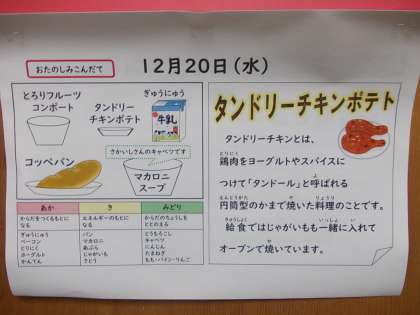 おたのしみこんだて
12月20日（水）
とろりフルーツ
コンポート
タンドリー
チキンポテト
ぎゅうにゅう
牛乳
さかいしさんのキャベツです
コッペパン
マカロニ
スープ
あか
き
みどり
からだをつくるもとに
なる
エネルギーのもとに
なる
からだのちょうしを
ととのえる
ぎゅうにゅう
ベーコン
とりにく
ヨーグルト
かんてん
パン
マカロニ
あぶら
じゃがいも
さとう
とうもろこし
キャベツ
にんじん
たまねぎ
もも・パイン・りんご
タンドリーチキンポテト
タンドリーチキンとは、
とりにく
鶏肉をヨーグルトやスパイスに
つけて「タンドール」と呼ばれる
えんとうがた
や
りょうり
円筒型のかまで焼いた料理のことです。
きゅうしょく
いっしょ
い
給食ではじゃがいもも一緒に入れて
や
オーブンで焼いています。